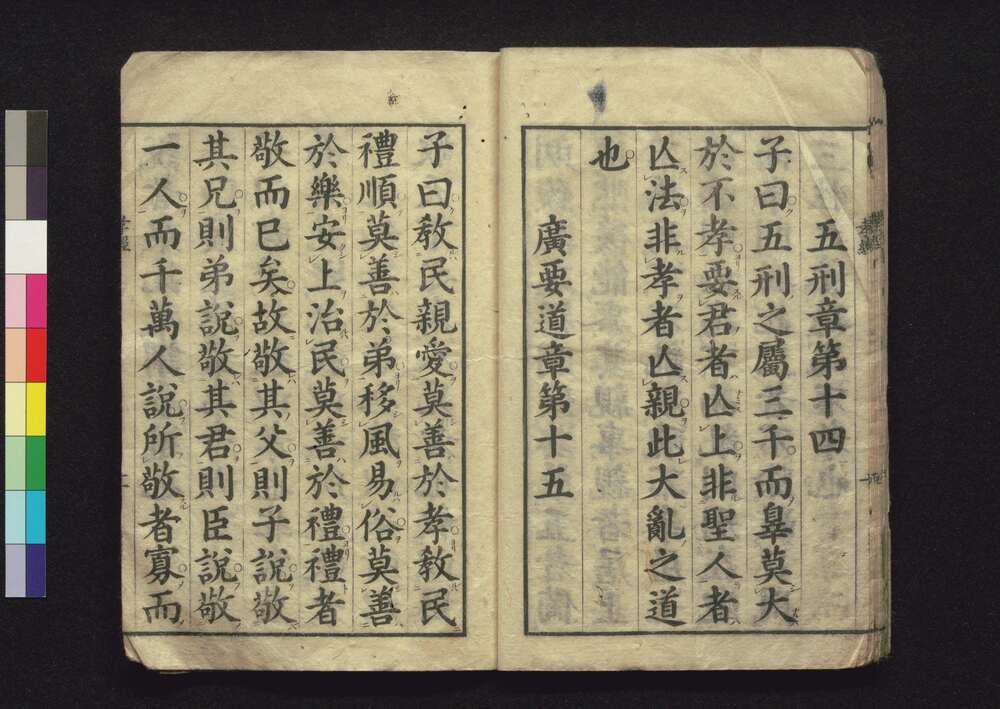 五刑章第十四
子曰五刑之屬三千而辠莫大
於不孝要君者亾上非聖人者
亾法非孝者亾親此大亂之道
也
廣要道章第十五
子曰敎民親愛莫善於孝敎民
禮順莫善於弟移風易俗莫善
於樂安上治民莫善於禮禮者
敬而已矣故敬其父則子說敬
其兄則弟說敬其君則臣說敬
一人而千萬人說所敬者寡而